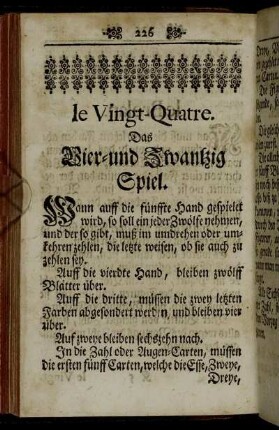 226
le Vingt-Quatre.
Das
Vier-und Zwantzig
Spiel.
Wann auff die fünffte Hand gespielet
wird, so soll ein jeder Zwölfe nehmen,
und der so gibt, muß im umdrehen oder um-
kehren zehlen, die letzte weisen, ob sie auch zu
zehlen sey.
Auff die vierdte Hand, bleiben zwölff
Blätter über.
Auff die dritte, müssen die zwey letzten
Farben abgesondert werden, und bleiben vier
über.
Auf zweye bleiben sechszehn nach.
In die Zahl oder Augen-Carten, müssen
die ersten fünff Carten, welche die Esse, Zweye,
Dreye,